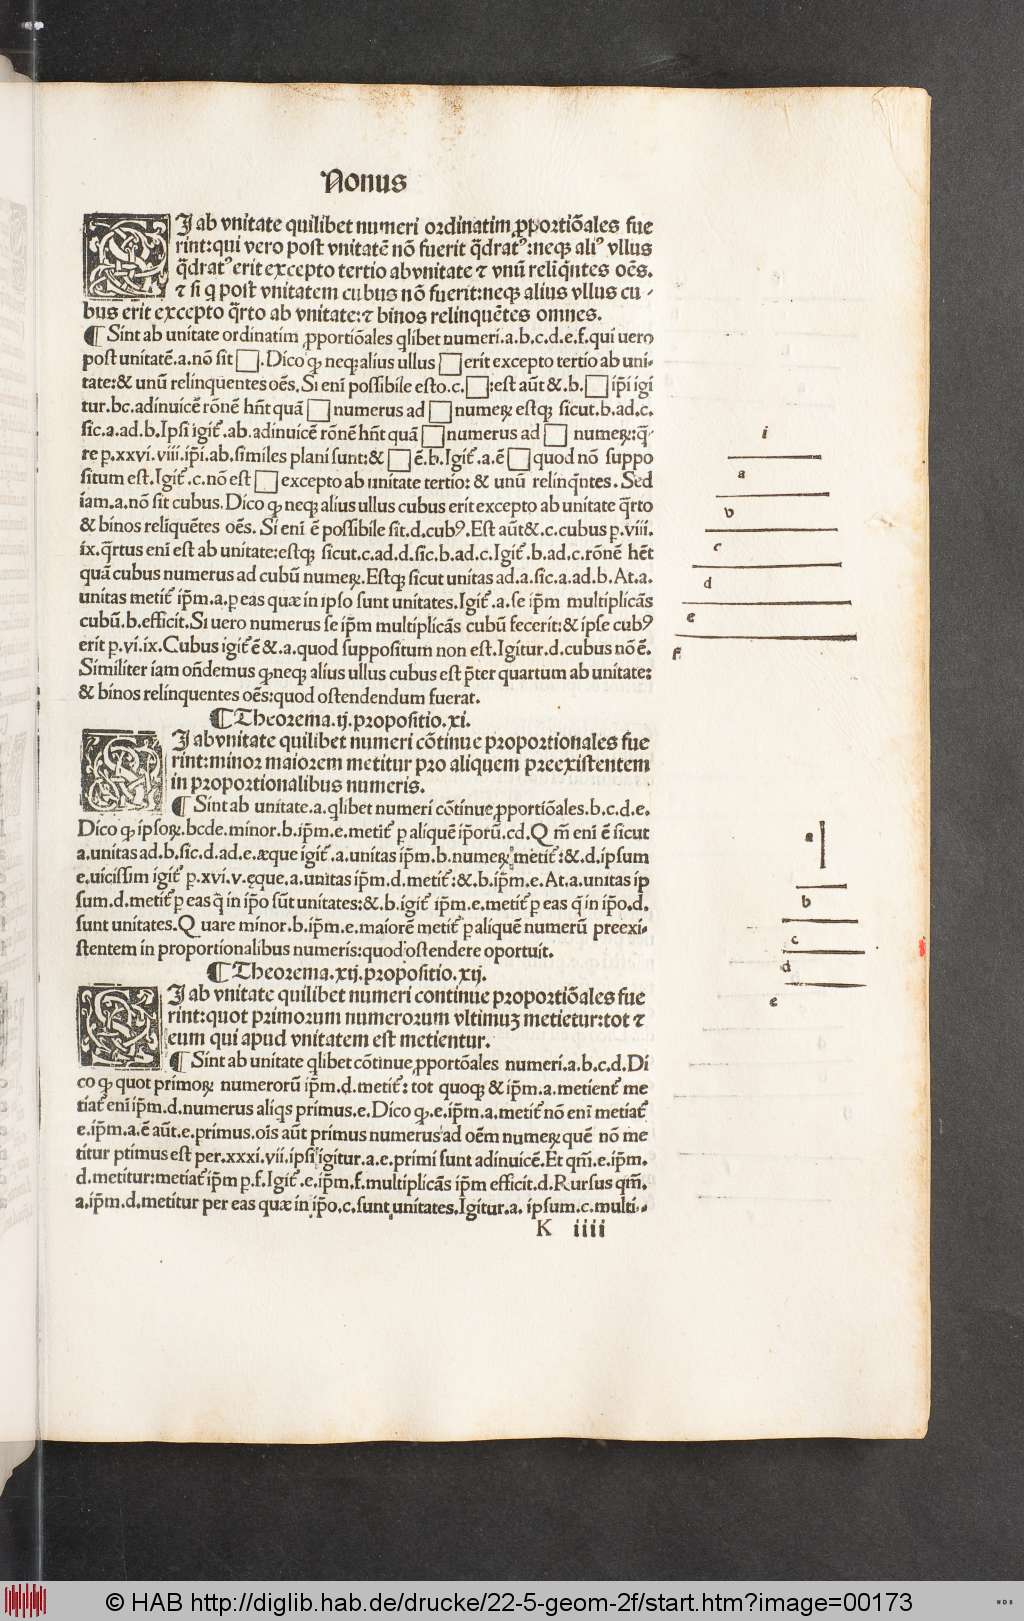 Nonus
SI ab vnitate quilibet numeri ordinatim ꝓportiōales fue
rint:qui vero post vnitatē nō fuerit q̄drat⁹:neqȝ ali⁹ vllus
q̄drat⁹ erit excepto tertio ab vnitate ⁊ vnū reliq̄ntes oēs.
⁊ si q post vnitatem cubus nō fuerit:neqȝ alius vllus cu-
bus erit excepto q̄rto ab vnitate:⁊ binos relinquētes omnes.
¶ Sint ab unitate ordinatim ꝓportiōales qlibet numeri.a.b.c.d.e.f.qui uero
post unitatē.a.nō sit □.Dico ꝙ neqȝ alius ullus □ erit excepto tertio ab uni-
tate:& unū relinquentes oēs.Si enī possibile esto.c.□:est aūt &.b.□ ip̄i igi
tur.bc.adinuicē rōnē hn̄t quā □ numerus ad □ numeꝝ estqȝ sicut.b.ad.c.
sic.a.ad.b.Ipsi igit̄.ab.adinuicē rōnē hn̄t quā □ numerus ad □ numeꝝ:q̄-
re ꝑ.xxvi.viii.ip̄i.ab.similes plani sunt:& □ ē.b.Igit̄.a.ē □ quod nō suppo
situm est.Igit̄.c.nō est □ excepto ab unitate tertio: & unū relinq̄ntes. Sed
iam.a.nō sit cubus.Dico ꝙ neqȝ alius ullus cubus erit excepto ab unitate q̄rto
& binos reliquētes oēs. Si enī ē possibile sit.d.cub⁹.Est aūt &.c.cubus ꝑ.viii.
ix.q̄rtus enī est ab unitate:estqȝ sicut.c.ad.d.sic.b.ad.c.Igit̄.b.ad.c.rōnē hēt
quā cubus numerus ad cubū numeꝝ.Estqȝ sicut unitas ad.a.sic.a.ad.b.At.a.
unitas metit̄ ip̄m.a.ꝑ eas quæ in ipso sunt unitates.Igit̄.a.se ip̄m multiplicās
cubū.b.efficit.Si uero numerus se ip̄m multiplicās cubū fecerit:& ipse cub⁹
erit ꝑ.vi.ix.Cubus igit̄ ē &.a.quod suppositum non est.Igitur.d.cubus nō ē.
Similiter iam on̄demus ꝙ neqȝ alius ullus cubus est p̄ter quartum ab unitate:
& binos relinquentes oēs:quod ostendendum fuerat.
¶ Theorema.ij.propositio.xi.
SI ab vnitate quilibet numeri cōtinue proportionales fue
rint:minor maiorem metitur pro aliquem preexistentem
in proportionalibus numeris.
¶ Sint ab unitate.a.qlibet numeri cōtinue ꝓportiōales.b.c.d.e.
Dico ꝙ ipsoꝝ.bcde.minor.b.ip̄m.e.metit̄ ꝑ aliquē ip̄orū.cd.Qm̄ enī ē sicut
a.unitas ad.b.sic.d.ad.e.æque igit̄.a.unitas ip̄m.b.numeꝝ metit̄:&.d.ipsum
e.uicissim igit̄ ꝑ.xvi.v.ęque.a.unitas ip̄m.d.metit̄:&.b.ip̄m.e.At.a.unitas ip
sum.d.metit̄ ꝑ eas q̄ in ip̄o sūt unitates:&.b.igit̄ ip̄m.e.metit̄ ꝑ eas q̄ in ip̄o.d.
sunt unitates.Quare minor.b.ip̄m.e.maiorē metit̄ ꝑ aliquē numerū preexi-
stentem in proportionalibus numeris:quod ostendere oportuit.
¶ Theorema.xij.propositio.xij.
SI ab vnitate quilibet numeri continue proportiōales fue
rint:quot primorum numerorum vltimuȝ metietur:tot ⁊
eum qui apud vnitatem est metientur.
¶ Sint ab unitate qlibet cōtinue ꝓportōales numeri.a.b.c.d.Di
co ꝙ quot primoꝝ numerorū ip̄m.d.metit̄: tot quoqȝ & ip̄m.a.metient̄ me
tiat̄ enī ip̄m.d.numerus aliqs primus.e.Dico ꝙ.e.ip̄m.a.metit̄ nō enī metiat̄
e.ip̄m.a.ē aūt.e.primus.oīs aūt primus numerus ad oēm numeꝝ quē nō me
titur ptimus est per.xxxi.vii.ipsi igitur.a.e.primi sunt adinuicē.Et qm̄.e.ip̄m.
d.metitur:metiat̄ ip̄m ꝑ.f.Igit̄.e.ip̄m.f.multiplicās ip̄m efficit.d.Rursus qm̄.
a.ip̄m.d.metitur per eas quæ in ip̄o.c.sunt unitates.Igitur.a. ipsum.c.multi-
K iiii
i
a
b
c
d
e
f
a
b
c
d
e
© HAB http://diglib.hab.de/drucke/22-5-geom-2f/start.htm?image=00173